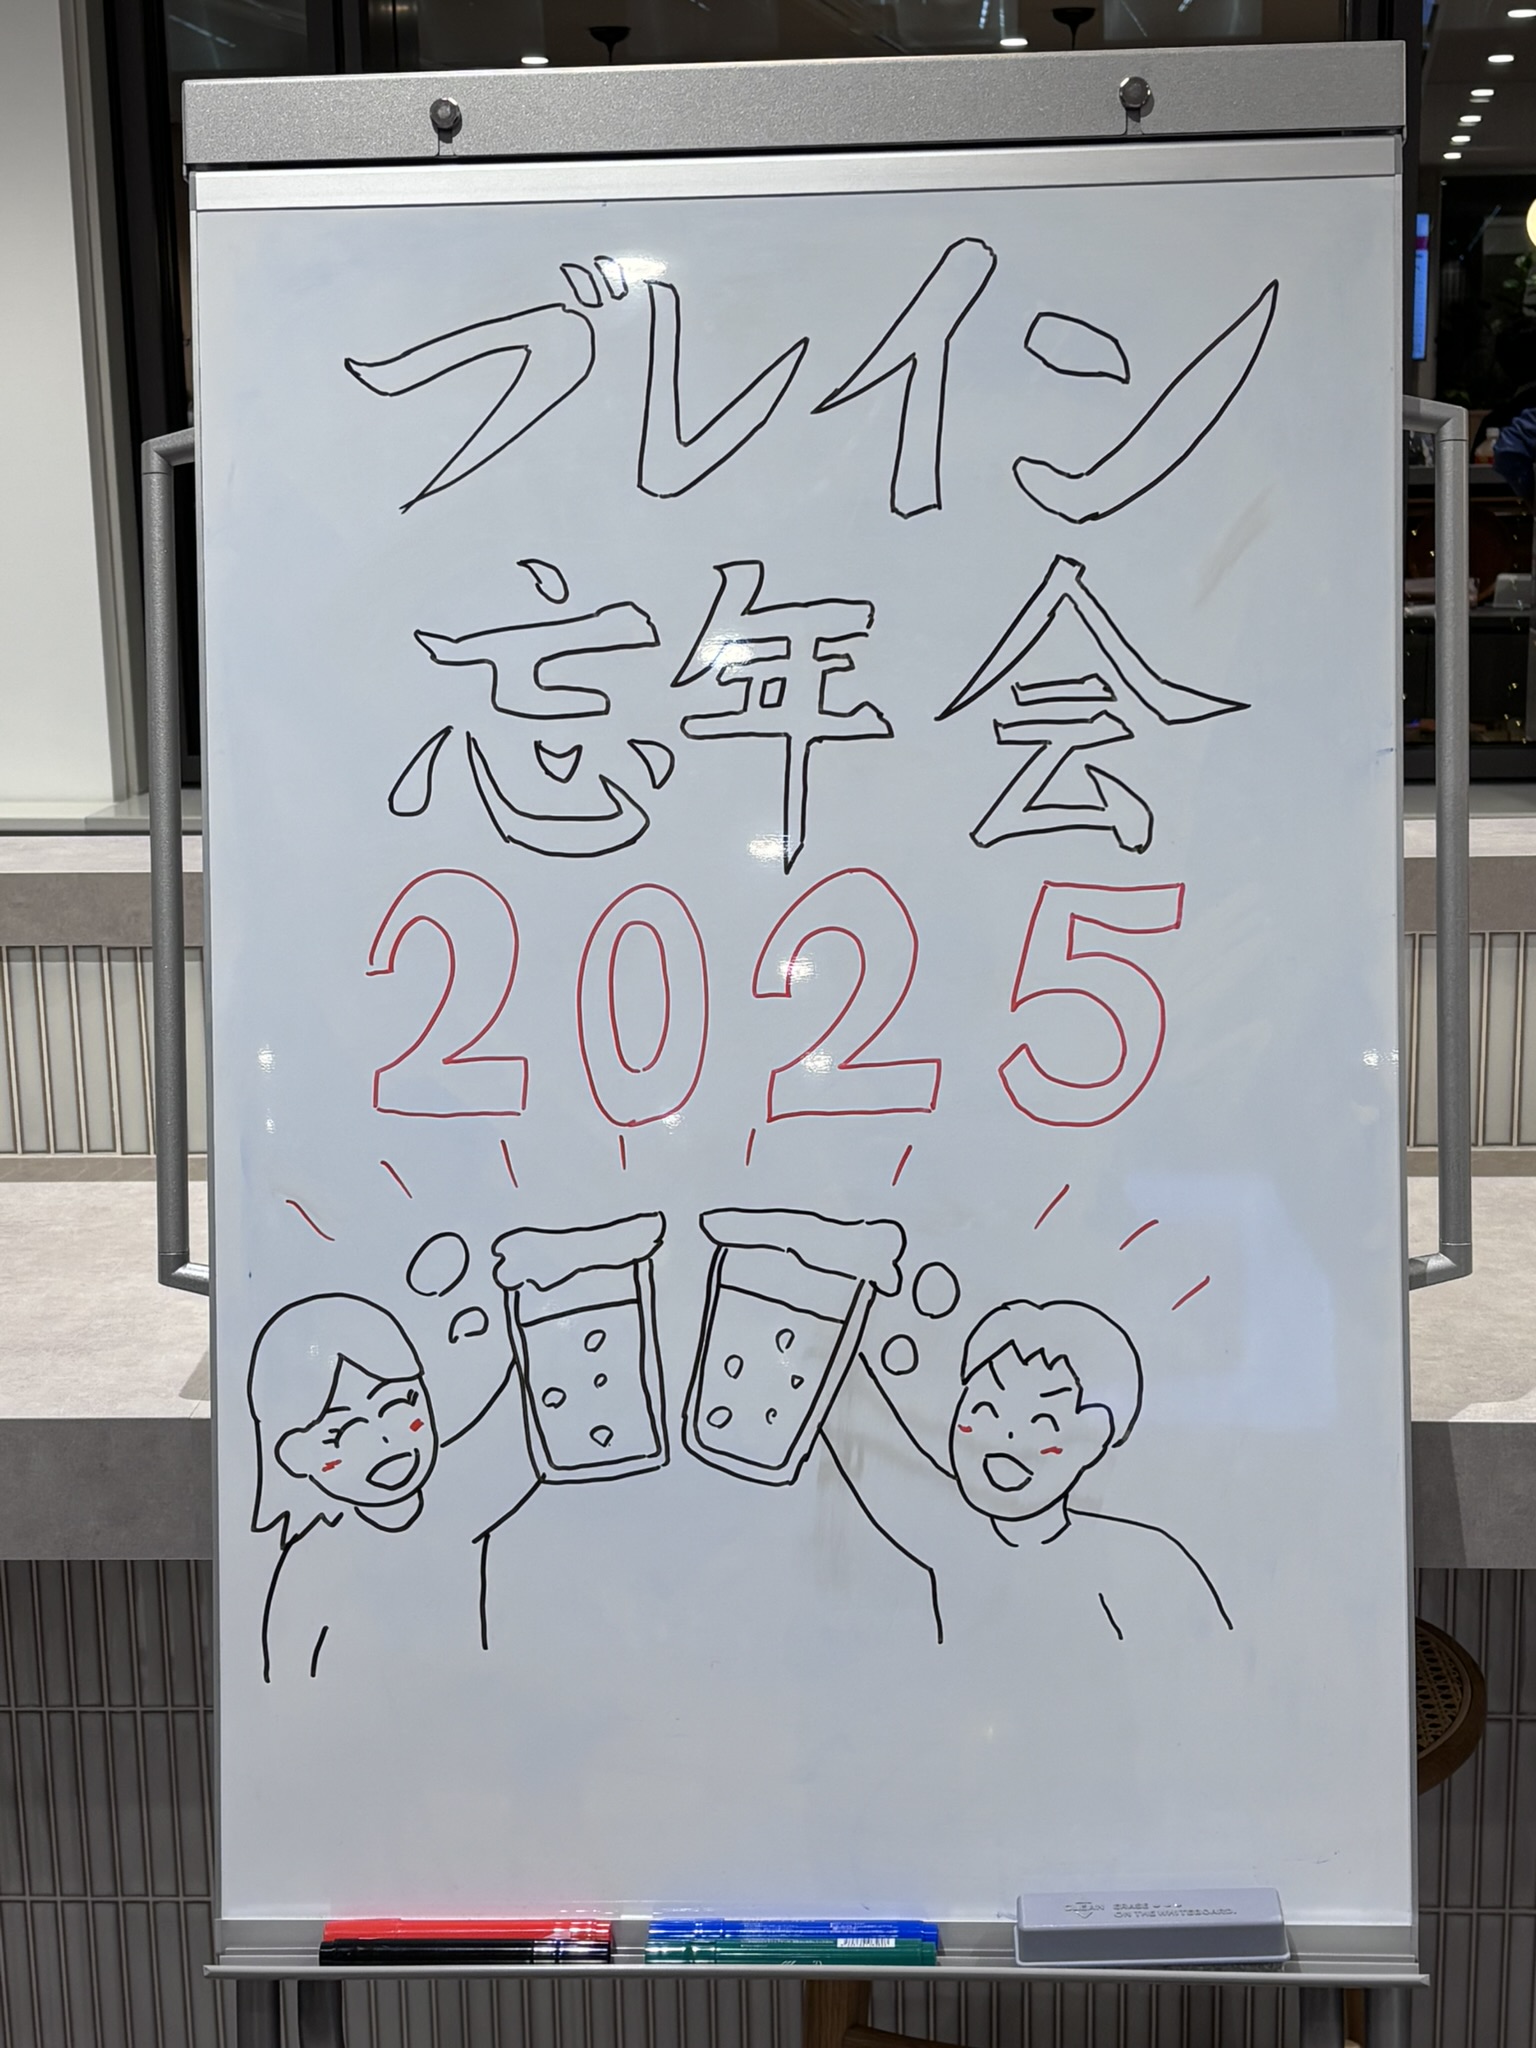 ブレイン
忘年会
2025
CLEAN ERASE
ON THE WHITEBOARD.